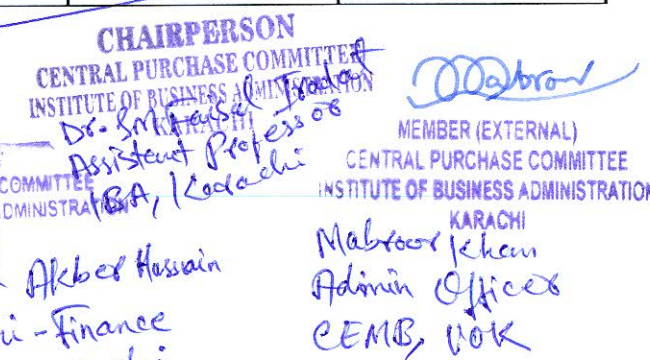 CHAIRPERSON
CENTRAL PURCHASE COMMITTEE
INSTITUTE OF BUSINESS ADMINISTRATION
KARACHI
Dr. SM Faisal Iradat
Assistant Professor
IBA, Karachi
COMMITTEE
DMINISTRATION
Akber Hussain
- Finance
MEMBER (EXTERNAL)
CENTRAL PURCHASE COMMITTEE
INSTITUTE OF BUSINESS ADMINISTRATION
KARACHI
Mabroor Khan
Admin Officer
CEMB, UOK